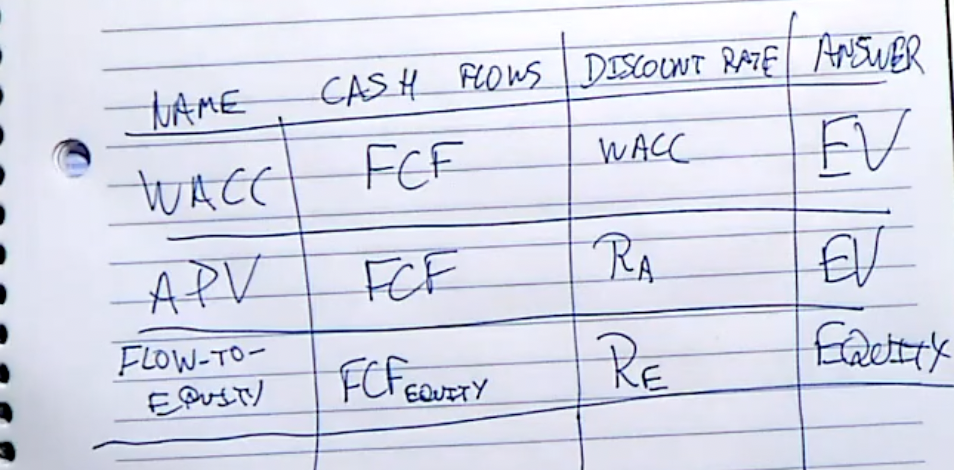 NAME CASH FLOWS DISCOUNT RATE ANSWER
WACC FCF WACC EV
APV FCF RA EV
FLOW-TO- FCFEQUITY RE EQUITY
EQUITY